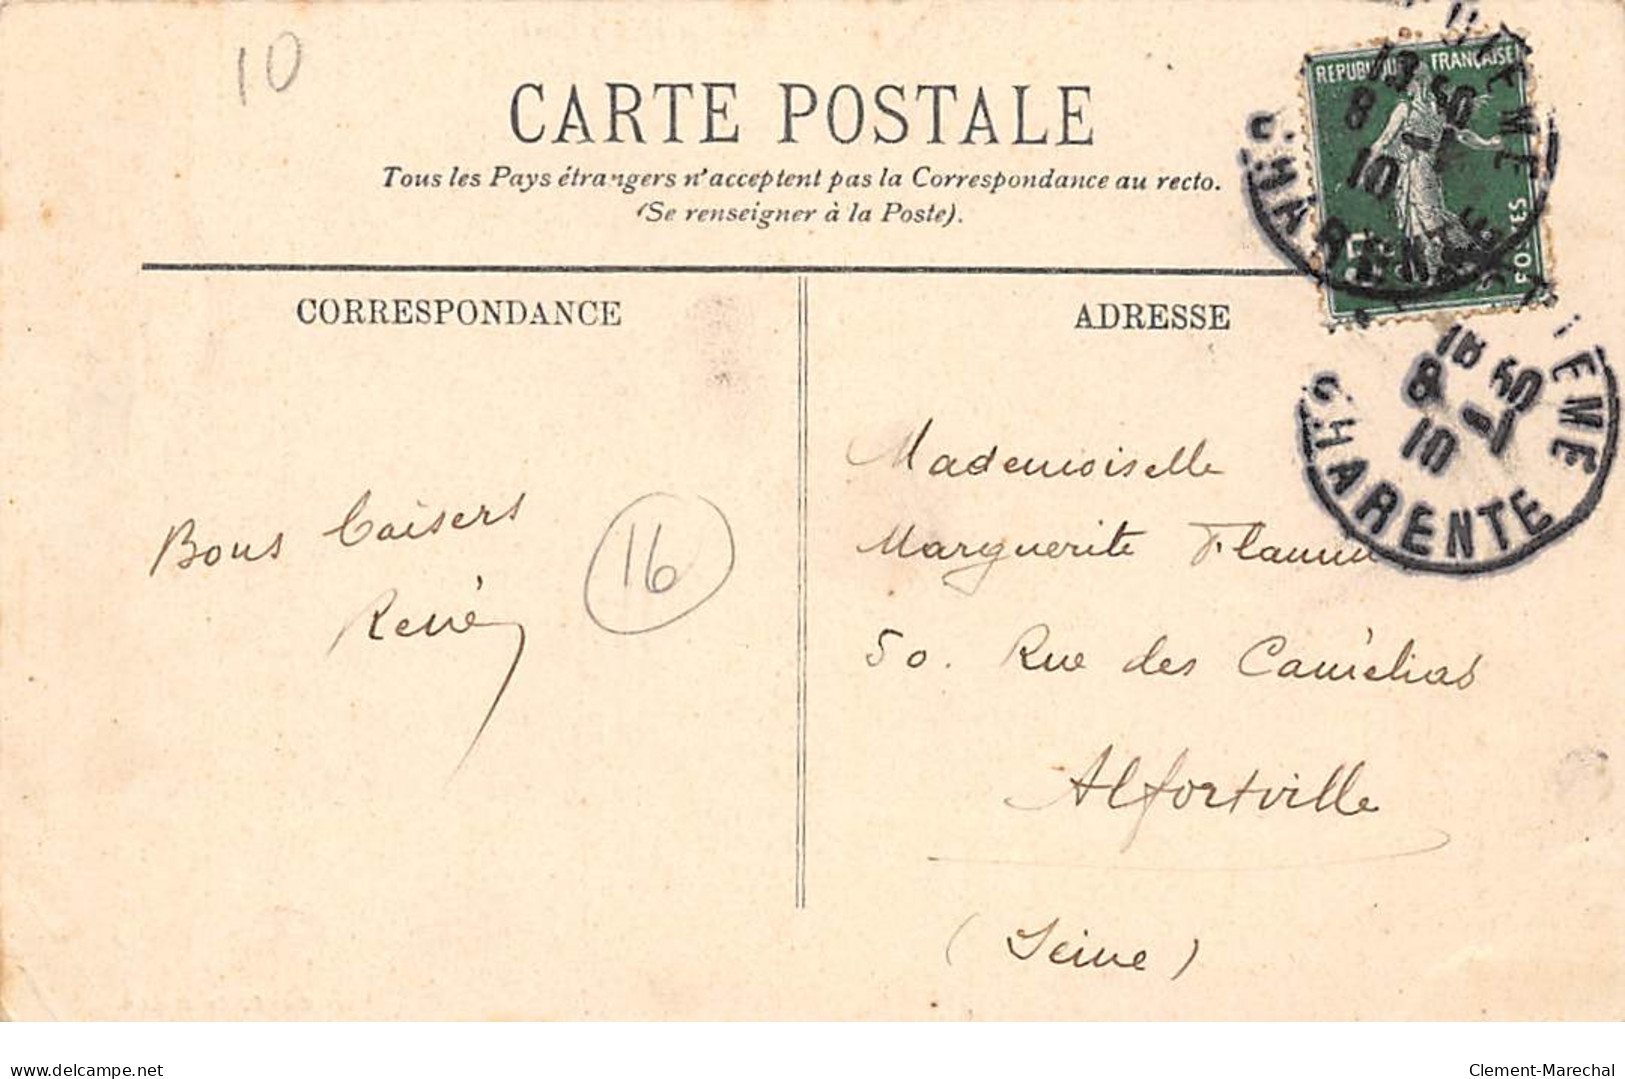 10
CARTE POSTALE
Tous les Pays étrangers n'acceptent pas la Correspondance au recto.
(Se renseigner à la Poste).
REPUBLIQUE FRANÇAISE
POSTES
18 50
8 -1
10
CHARENTE
CORRESPONDANCE
ADRESSE
18 50
8 -1
10
CHARENTE
Bons baisers
René
16
Mademoiselle
Marguerite
50. Rue des Camélias
Alfortville
(Seine)
delcampe.net
Clement-Marechal